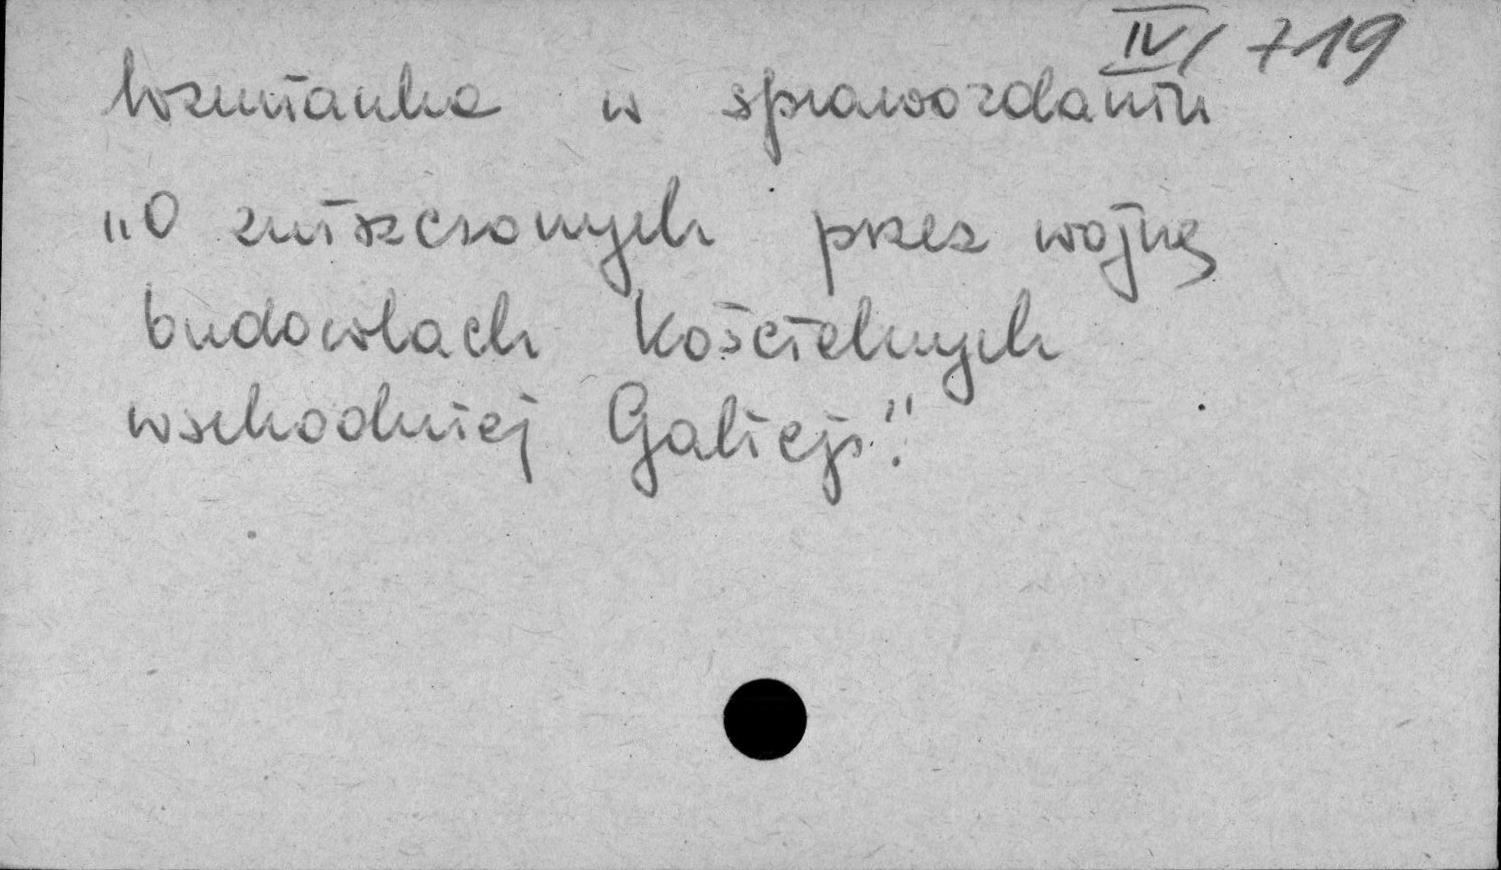 IV/719
Wzmianka w sprawozdaniu
„O zniszczonych przez wojnę
budowlach kościelnych
wschodniej Galicji".